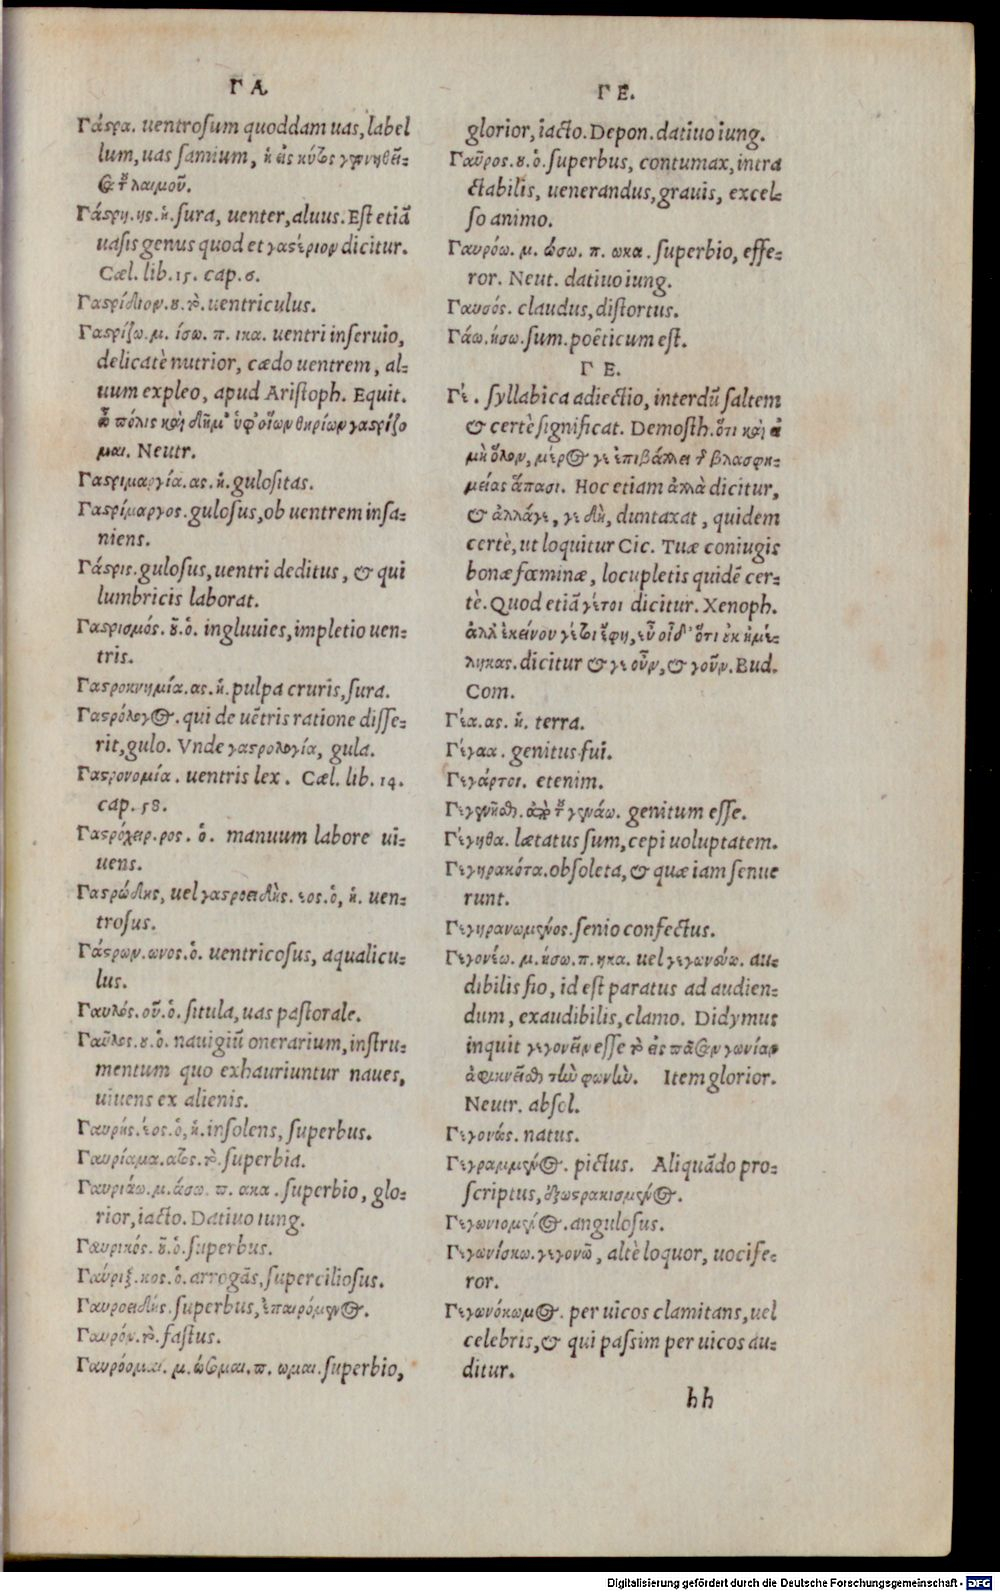 ΓΑ.
Γάςρα. uentrosum quoddam uas, label
lum, uas samium,
λαιμοῦ.
Γάςρη. ης. ἡ. sura, uenter, aluus. Est etiã
uasis genus quod et γαςέριον dicitur.
Cæl. lib. 15. cap. 6.
Γαςρίδιον. ου. τὸ. uentriculus.
Γαςρίζω. μ. ίσω. π. ικα. uentri inseruio,
delicatè nutrior, cædo uentrem, al-
uum expleo, apud Aristoph. Equit.
ὦ πόλις καὶ δῆμ' ὑφ' οἵων θηρίων γαςρίζο
μαι. Neutr.
Γαςριμαργία. ας. ἡ. gulositas.
Γαςρίμαργος. gulosus, ob uentrem insa-
niens.
Γάςρις. gulosus, uentri deditus, & qui
lumbricis laborat.
Γαςρισμός. οῦ. ὁ. ingluuies, impletio uen-
tris.
Γαςροκνημία. ας. ἡ. pulpa cruris, sura.
Γαςρόλογος. qui de uẽtris ratione disse-
rit, gulo. Vnde γαςρολογία, gula.
Γαςρονομία. uentris lex. Cæl. lib. 14.
cap. 58.
Γαςρόχειρ. ρος. ὁ. manuum labore ui-
uens.
Γαςρώδης, uel γαςροειδὴς. εος. ὁ, ἡ. uen-
trosus.
Γάςρων. ωνος. ὁ. uentricosus, aqualicu-
lus.
Γαυλός. οῦ. ὁ. situla, uas pastorale.
Γαῦλος. ου. ὁ. nauigiũ onerarium, instru-
mentum quo exhauriuntur naues,
uiuens ex alienis.
Γαυρής. έος. ὁ, ἡ. insolens, superbus.
Γαυρίαμα. ατος. τὸ. superbia.
Γαυριάω. μ. άσω. π. ακα. superbio, glo-
rior, iacto. Datiuo iung.
Γαυρικός. οῦ. ὁ. superbus.
Γαύριξ. κος. ὁ. arrogãs, superciliosus.
Γαυροειδής. superbus, ἐπαιρόμενος.
Γαυρόν. τὸ. fastus.
Γαυρόομαι. μ. ώσομαι. π. ωμαι. superbio,
ΓΕ.
glorior, iacto. Depon. datiuo iung.
Γαῦρος. ου. ὁ. superbus, contumax, intra
ctabilis, uenerandus, grauis, excel-
so animo.
Γαυρόω. μ. ώσω. π. ωκα. superbio, effe-
ror. Neut. datiuo iung.
Γαυσός. claudus, distortus.
Γάω. ήσω. sum. poëticum est.
ΓΕ.
Γέ. syllabica adiectio, interdũ saltem
& certè significat. Demosth. ὅτι καὶ εἰ
μὴ ὅλον, μέρος γε ἐπιβάλλει τῆς βλασφη-
μείας ἅπασι. Hoc etiam ἀλλὰ dicitur,
& ἀλλάγε, γε δὴ, duntaxat, quidem
certè, ut loquitur Cic. Tuæ coniugis
bonæ fœminæ, locupletis quidẽ cer-
tè. Quod etiã γέτοι dicitur. Xenoph.
ἀλλ' ἐκείνου γέτοι ἔφη, εὖ οἶδ' ὅτι οὐκ ἠμέ-
ληκας. dicitur & γε οὖν, & γοῦν. Bud.
Com.
Γέα. ας. ἡ. terra.
Γέγαα. genitus fui.
Γεγάρτοι. etenim.
Γεγενῆσθαι. γενάω. genitum esse.
Γέγηθα. lætatus sum, cepi uoluptatem.
Γεγηρακότα. obsoleta, & quæ iam senue
runt.
Γεγηρανωμένος. senio confectus.
Γεγονέω. μ. ήσω. π. ηκα. uel γεγωνέω. au-
dibilis fio, id est paratus ad audien-
dum, exaudibilis, clamo. Didymus
inquit γεγονεῖν esse τὸ εἰς πᾶσαν γωνίαν
ἀφικνεῖσθαι τὴν φωνὴν. Item glorior.
Neutr. absol.
Γεγονώς. natus.
Γεγραμμένος. pictus. Aliquãdo pro-
scriptus, ἐξωςρακισμένος.
Γεγωνιομένος. angulosus.
Γεγωνίσκω. γεγονῶ, altè loquor, uocife-
ror.
Γεγωνόκωμος. per uicos clamitans, uel
celebris, & qui passim per uicos au-
ditur.
hh
Digitalisierung gefördert durch die Deutsche Forschungsgemeinschaft - DFG